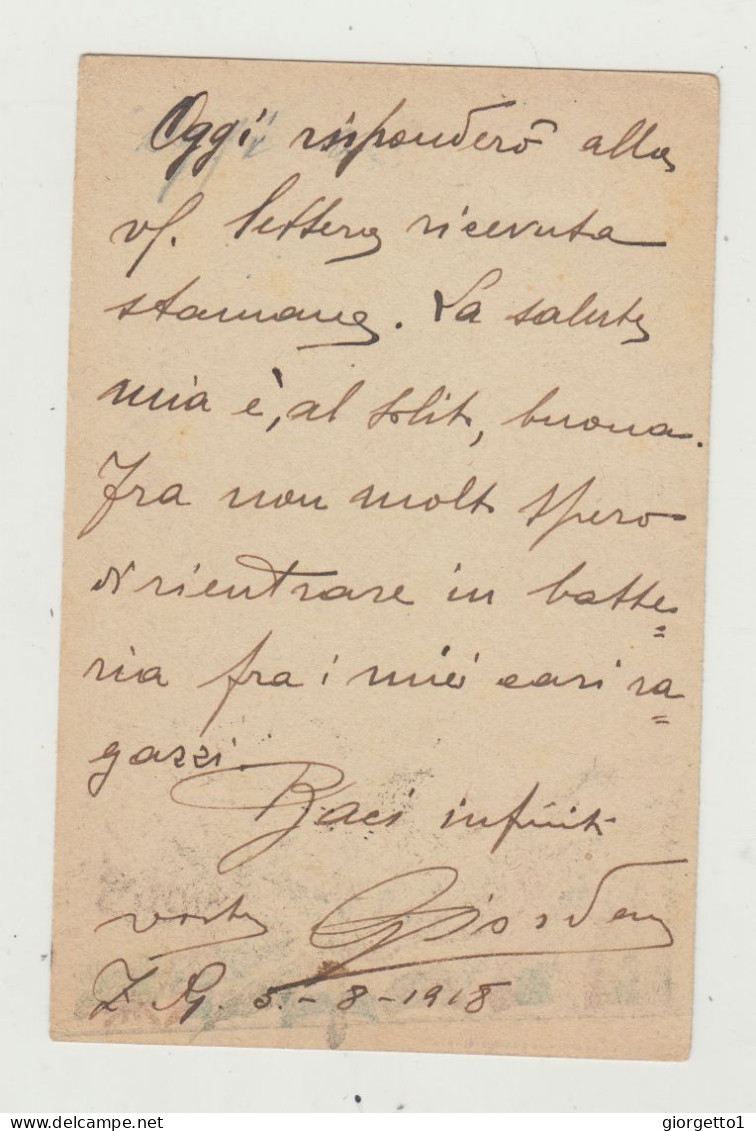 Oggi risponderò alla
vs. lettera ricevuta
stamane. La salute
mia è, al solito, buona.
Fra non molto spero
di rientrare in batte=
ria fra i miei cari ra=
gazzi.
Baci infiniti
vostro
Z.G. 5.-8-1918
delcampe.net
giorgetto1